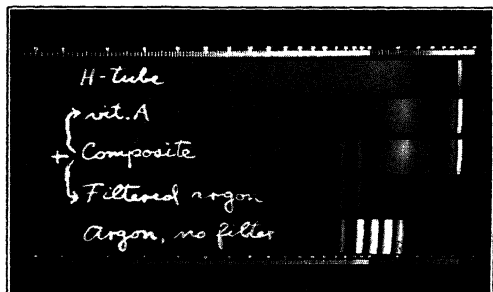 H-tube
vit. A
+ Composite
Filtered argon
Argon, no filter